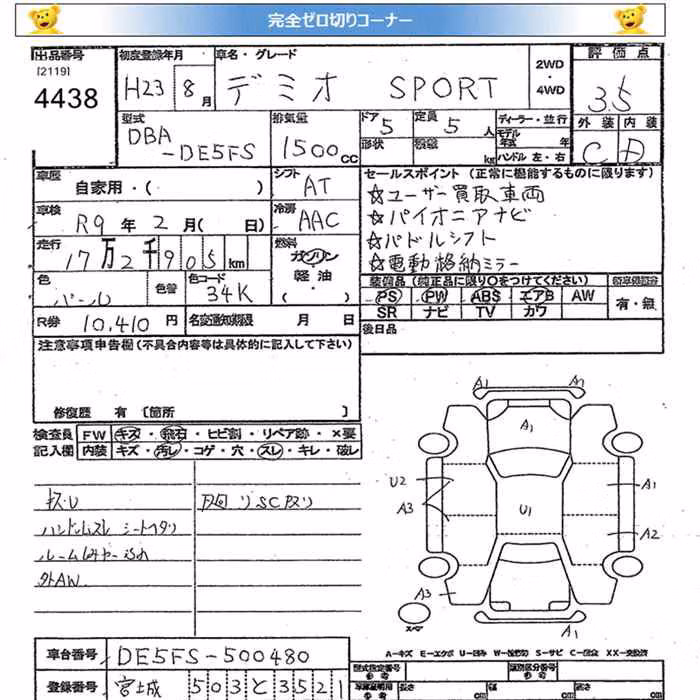 完全ゼロ切りコーナー
出品番号 初度登録年月 車名・グレード 評価点
[2119]
4438
H23 8月 デミオ SPORT 2WD・4WD 3.5
型式 排気量 ドア 定員 ディーラー・並行 外装 内装
DBA-DE5FS 1500cc 5 5人 モデル年式 年 C D
形状 積載 kg ハンドル 左・右
車歴 自家用・( ) シフト AT
セールスポイント (正常に機能するものに限ります)
☆ユーザー買取車両
☆パイオニアナビ
☆パドルシフト
☆電動格納ミラー
車検 R9年2月( 日) 冷房 AAC
走行 17万2千905km 燃料 ガソリン・軽油・( )
色 パール 色替 色コード 34K
装備品 (純正品に限り○をつけてください)
PS PW ABS エアB AW 有・無
SR ナビ TV カワ
R券 10,410円 名変通知期限 月 日
後日品
注意事項申告欄(不具合内容等は具体的に記入して下さい)
修復歴 有 〔箇所 〕
検査員 FW キズ・飛石・ヒビ割・リペア跡・×要
記入欄 内装 キズ・汚レ・コゲ・穴・スレ・キレ・破レ
キズ・U
ハンドルスレ シートヘタリ
外AW
A1 A1
A1
U2 A1
A3 U1
A2
A3
スペア A1
A-キズ E-エクボ U-凹み W-波打ち S-サビ C-腐食 XX-交換済
車台番号 DE5FS-500480
型式指定番号 参考 類別区分番号 参考
登録番号 宮城 503と3521
長さ cm 幅 cm 高さ cm